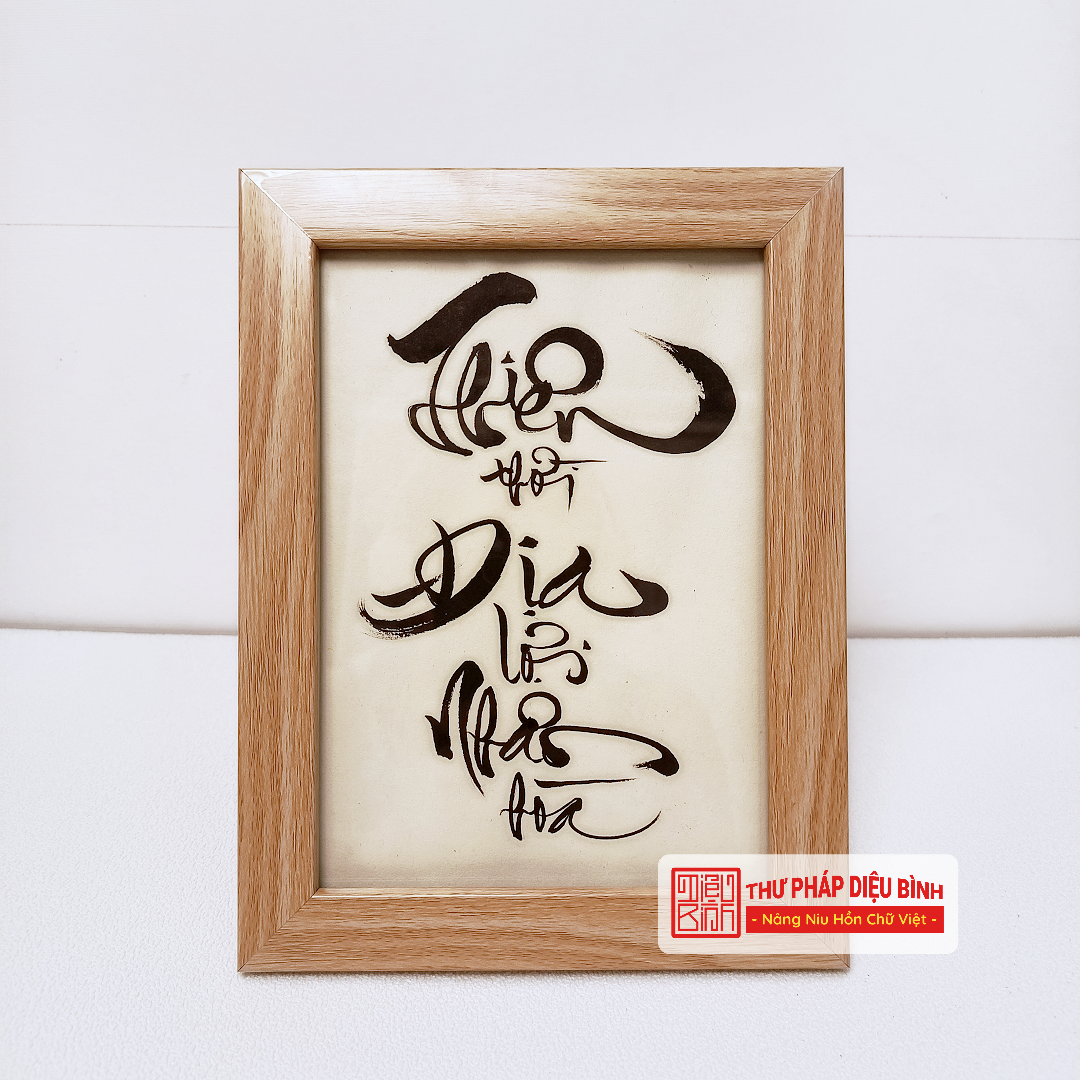 Thiên
thời
Địa
lợi
Nhân
hòa
Diệu
Bình
THƯ PHÁP DIỆU BÌNH
- Nâng Niu Hồn Chữ Việt -